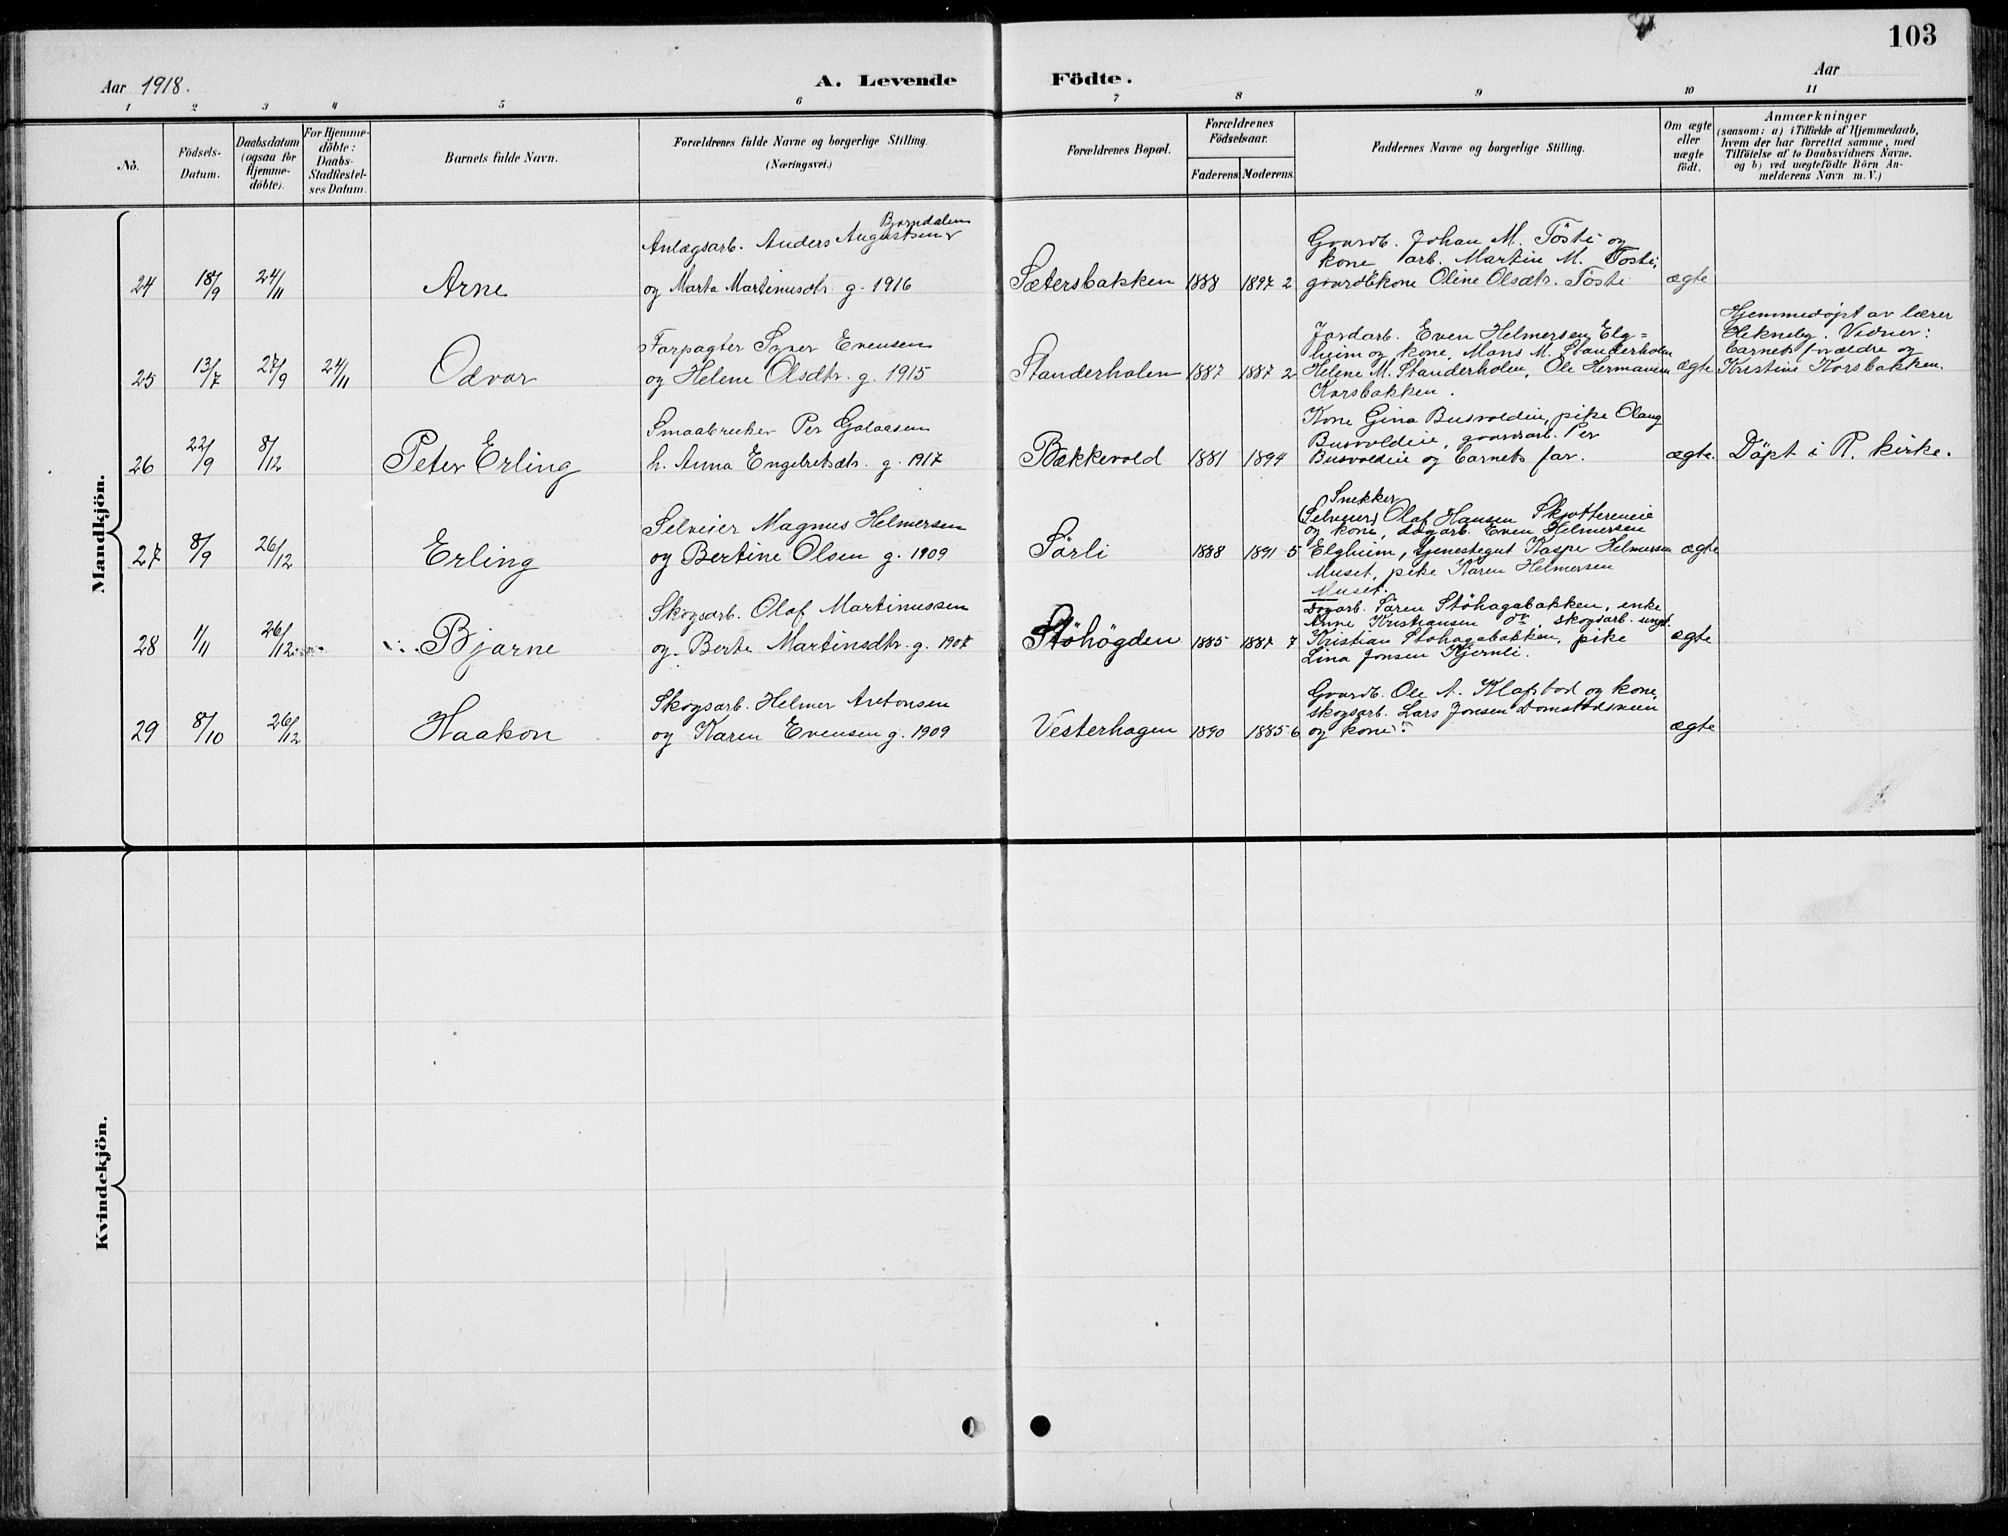 103
Aar 1918.
A. Levende Födte.
Aar
1 2 3 4 5 6 7 8 9 10 11
Nö.
Födsels-Datum.
Daabsdatum (ogsaa for Hjemme-döbte).
For Hjemme-döbte: Daabs-Stadfæstel-ses Datum.
Barnets fulde Navn.
Forældrenes fulde Navne og borgerlige Stilling.
(Næringsvei.)
Forældrenes Bopæl.
Forældrenes Födselsaar.
Faderens. Moderens.
Faddernes Navne og borgerlige Stilling.
Om ægte eller uægte födt.
Anmærkninger
(saasom: a) i Tilfælde af Hjemmedaab,
hvem der har forrettet samme, med
Tilföielse af to Daabsvidners Navne.
og b) ved uægtefödte Börn An-
melderens Navn m. V.)
Mandkjön.
24 18/9 24/11 Arne
Anlægsarb. Anders Augustsen Bjørndalen
og Marta Martinusdtr. g. 1916
Sætersbakken 1888 1897 2
Gaardb. Johan M. Tösti og
kone, arb. Martin M. Tösti,
gaardbkone Oline Olsdtr. Tösti
ægte
25 13/7 27/9 24/11 Odvar
Forpagter Syver Evensen
og Helene Olsdtr. g. 1915
Standerholen 1887 1887 2
Jordarb. Even Helmersen Elg=
heim og kone, Mons M. Standerholen
Helene M. Standerholen, Ole Hermansen
Korsbakken.
ægte
Hjemmedøpt av lærer
Hekneby. Vidner:
barnets forældre og
Kristine Korsbakken.
26 22/9 8/12 Peter Erling
Smaabruker Per Golaasen
h. Anna Engebretsdtr. g. 1917
Bækkevold 1881 1894
Kone Gina Busvoldeie, pike Olaug
Busvoldeie, gaardarb. Per
Busvoldeie og barnets far.
ægte.
Döpt i R. kirke.
27 8/9 26/12 Erling
Selveier Magnus Helmersen
og Bertine Olsen g. 1909
Sörli 1888 1891 5
Snekker
(Selveier) Olaf Hansen Skjøttereneie
og kone, dagarb. Even Helmersen
Elgheim, tjenestegut Kasper Helmersen
Muset, pike Karen Helmersen
Muset.
ægte
28 1/11 26/12 Bjarne
Skogsarb. Olaf Martinussen
og Berte Martinsdtr. g. 1907
Stöhögden 1885 1887 7
Dagarb. Sören Stöhagabakken, enke
Anne Kristiansen do, skogsarb. ungk.
Kristian Stöhagabakken, pike
Lina Jonsen Kjernli.
ægte
29 8/10 26/12 Haakon
Skogsarb. Helmer Antonsen
og Karen Evensen g. 1909
Vesterhagen 1890 1885 6
Gaardb. Ole A. Klafstad og kone,
skogsarb. Lars Jonsen Domstadsveen
og kone.
ægte
Kvindekjön.